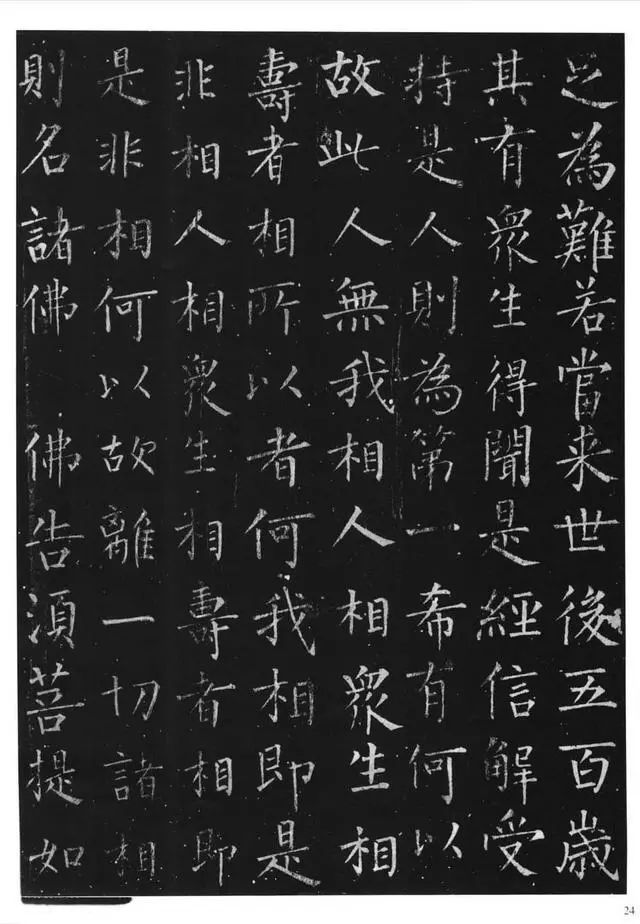 足為難若當来世後五百歲
其有衆生得聞是經信解受
持是人則為第一希有何以
故此人無我相人相衆生相
壽者相所以者何我相即是
非相人相衆生相壽者相即
是非相何以故離一切諸相
則名諸佛 佛告須菩提如
24